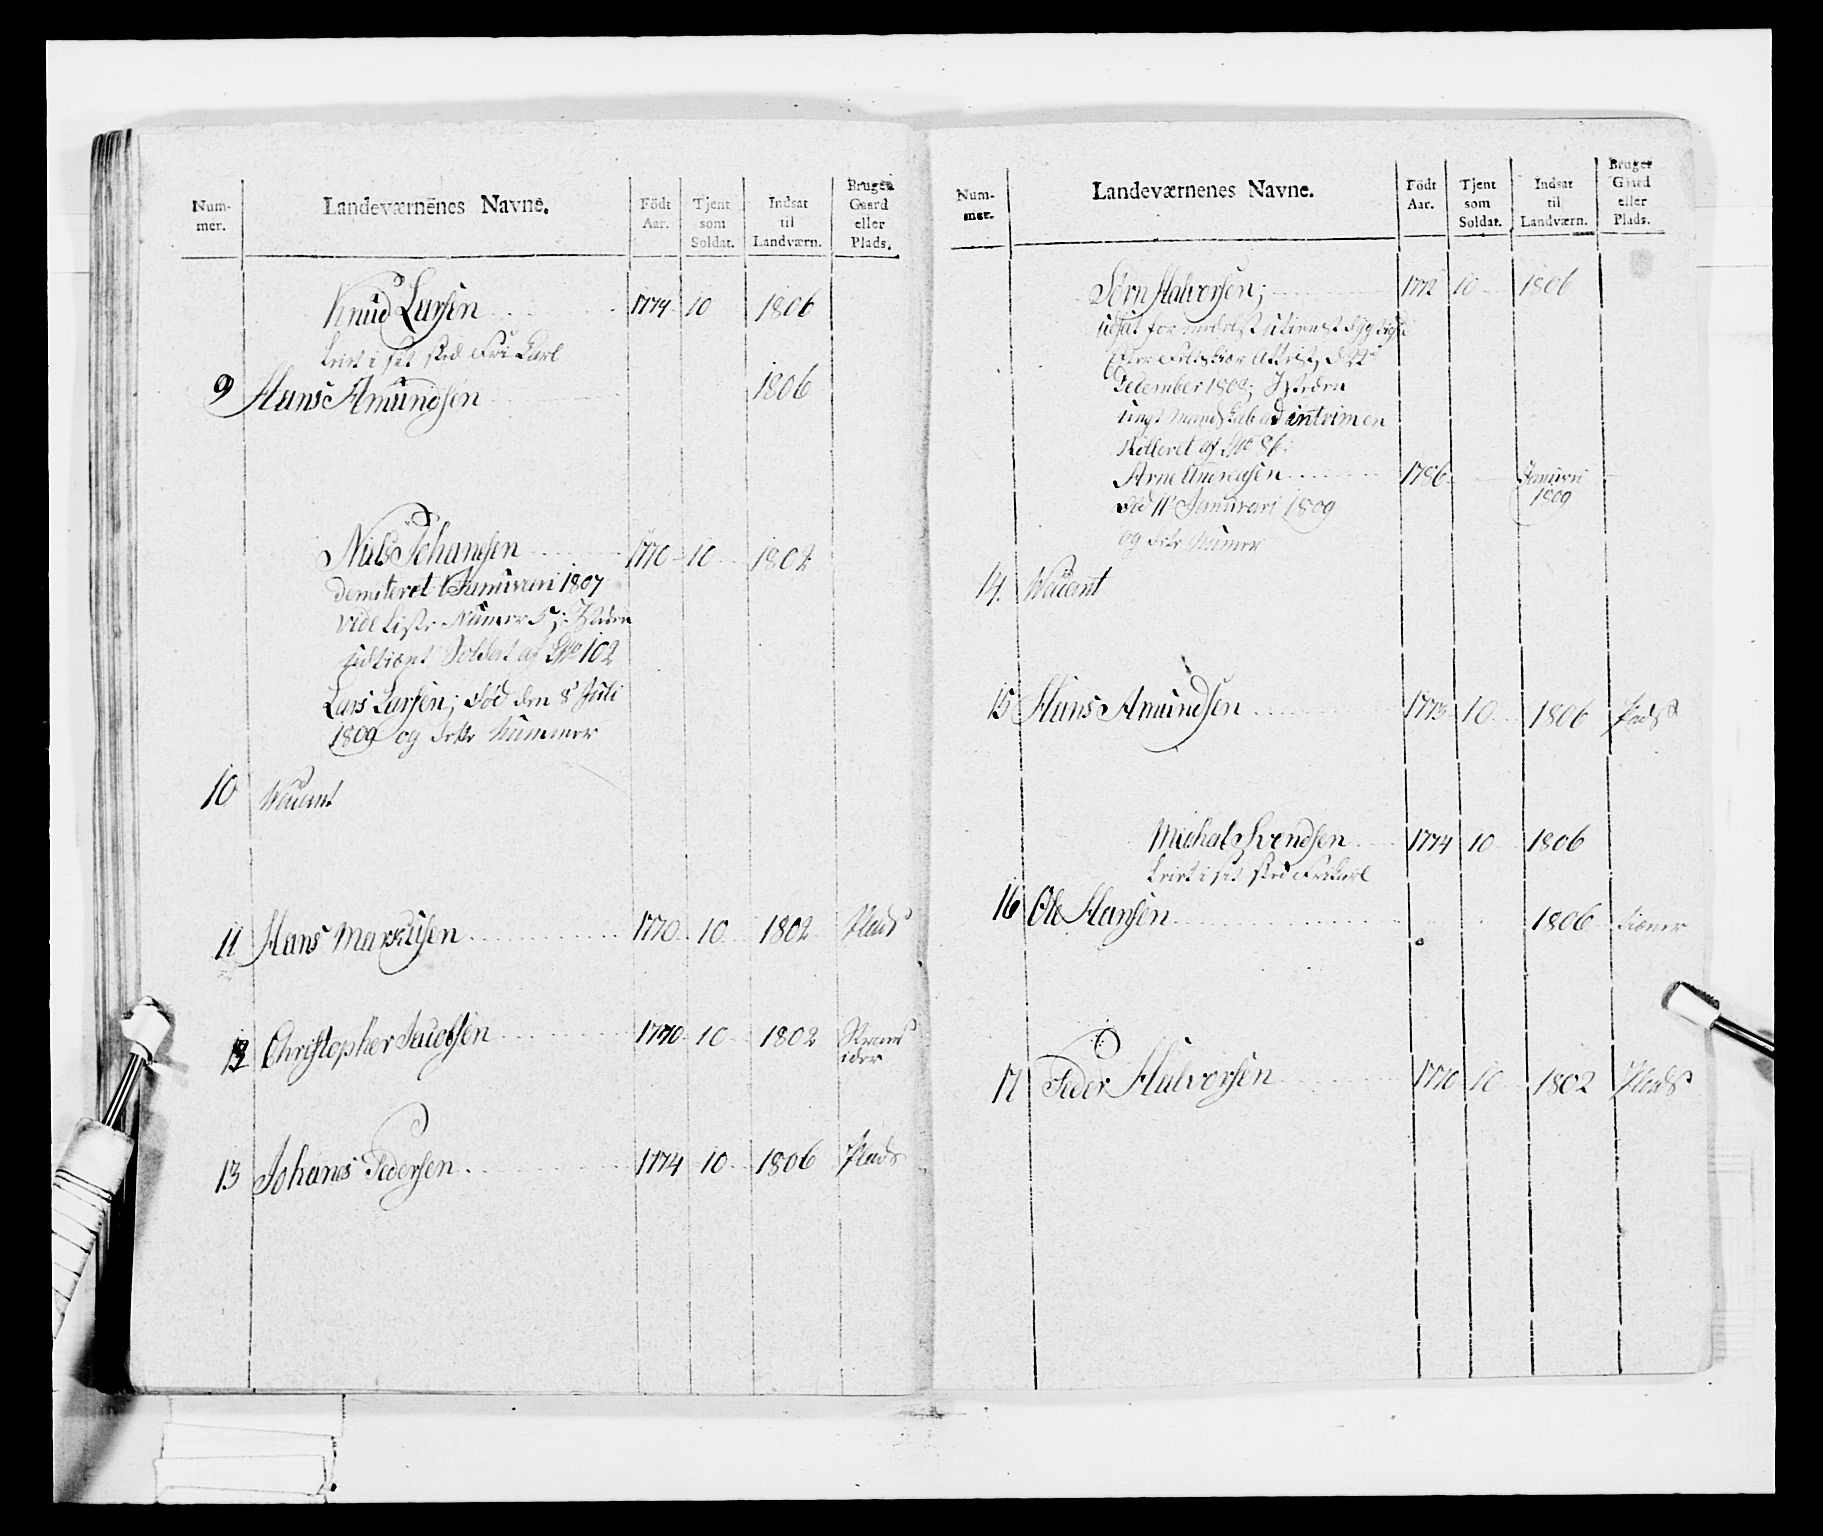 Num-
mer.
Landeværnenes Navne.
Födt
Aar.
Tjent
som
Soldat.
Indsat
til
Landværn.
Bruger
Gaard
eller
Plads.
Knud Larsen 1774 10 1806
i sit sted Fri Karl
9 Hans Amundsen 1806
Niels Johansen 1770 10 1802
demiteret 1 Januari 1807
vide Liste Numer 5; Isteden
udtient Soldat af No 102
Lars Larsen; död den 8 Juli
1809 og dette Nummer
10 Vacant
11 Hans Markusen 1770 10 1802 Plads
12 Christopher Jacobsen 1770 10 1802
13 Johanes Pedersen 1774 10 1806 Plads
Num-
mer.
Landeværnenes Navne.
Födt
Aar.
Tjent
som
Soldat.
Indsat
til
Landværn.
Bruger
Gaard
eller
Plads.
Sörn Halvorsen; 1772 10 1806
December 1808; Isteden
ungt Mandskab ad intrim en
af No 86
Arne Andreasen 1786 Januari
1809
död 11 Januari 1809
og dette Numer
14. Vacant
15 Hans Amundsen 1773 10 1806 Plads
Michal Svendsen 1774 10 1806
i sit sted Frikarl
16 Ole Hansen 1806 tiener
17 Peder Halvorsen 1770 10 1802 Plads